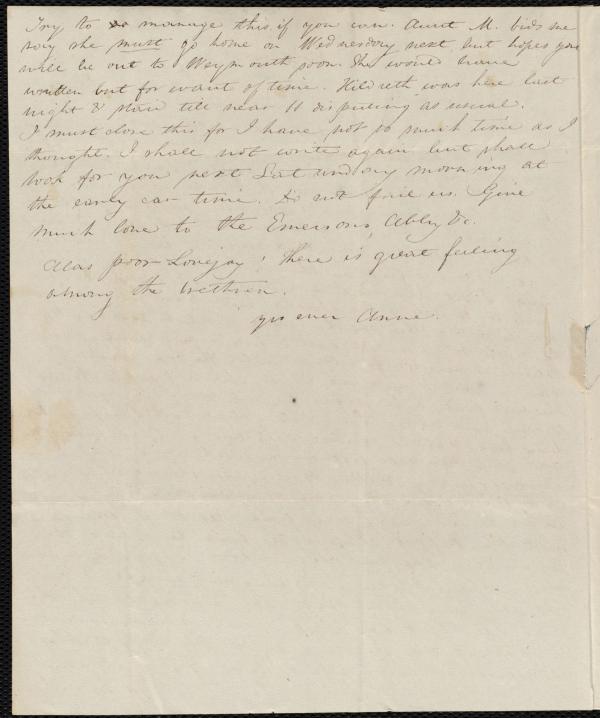 Try to manage this, if you can. Aunt M. bids me
say she must go home on Wednesday next, but hopes you
will be out to Weymouth soon. She would have
written but for want of time. Hildreth was here last
night & staid till near 11 disputing as usual.
I must close this for I have not so much time as I
thought. I shall not write again but shall
look for you next Saturday morning at
the early car time. Do not fail us. Give
much love to the Emersons, Abby &c.
Alas poor Lovejoy! there is great feeling
among the brethren.
yrs ever Anne.